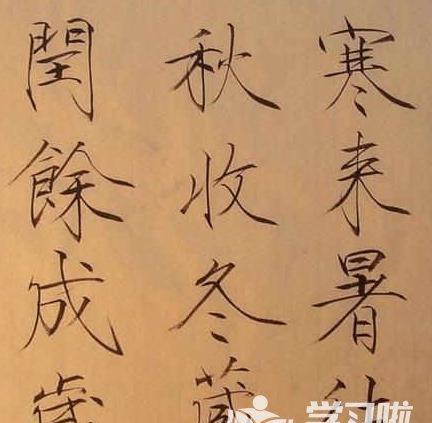 寒来暑
秋收冬藏
閏餘成歲
学习啦